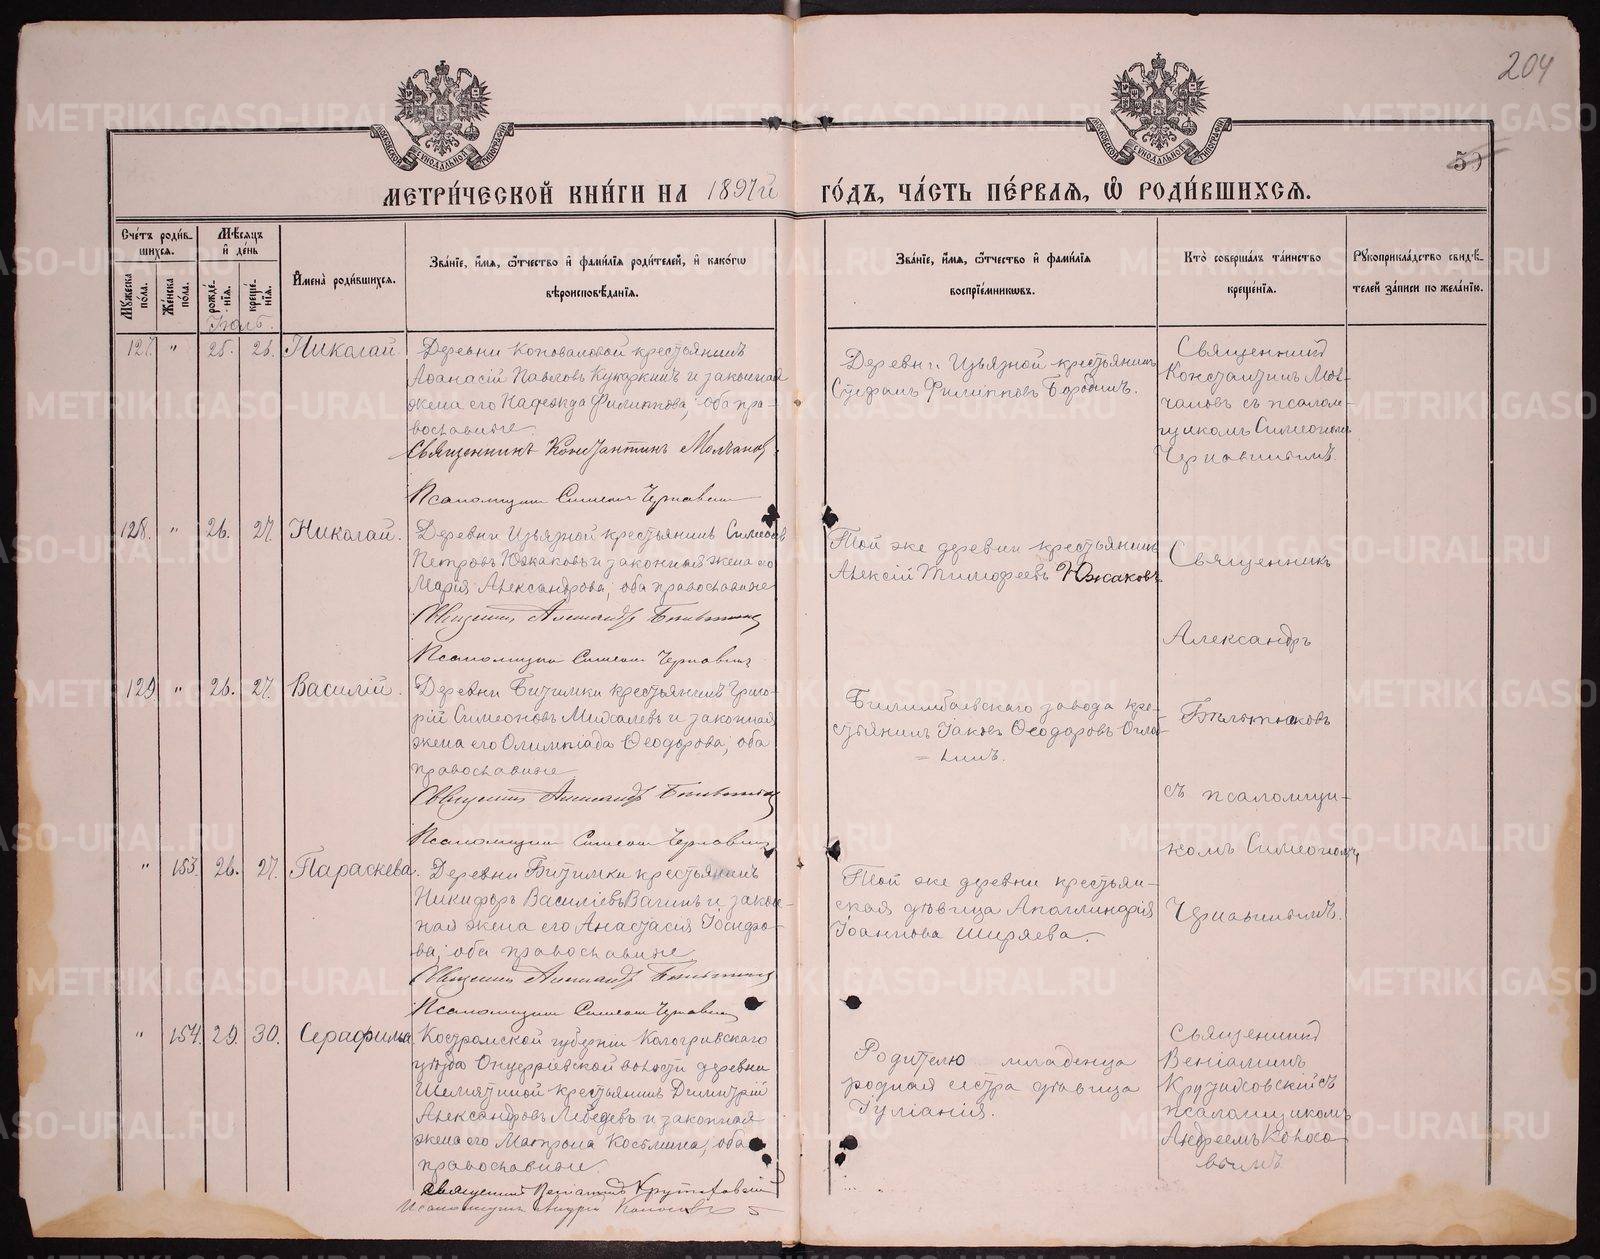 204
МОСКОВСКОЙ СѴНОДАЛЬНОЙ ТИПОГРАФІИ
МОСКОВСКОЙ СѴНОДАЛЬНОЙ ТИПОГРАФІИ
МЕТРИ́ЧЕСКОЙ КНИ́ГИ НА 1897й ГО́ДЪ, ЧА́СТЬ ПЕ́РВАѦ, Ѡ РОДИ́ВШИХСѦ.
Сче́тъ роди́в-
шихсѧ.
Мѣ́сѧцъ
и҆ де́нь
Мꙋжеска по́ла.
Же́нска по́ла.
рожде́-
нїѧ.
креще́-
нїѧ.
Имена̀ роди́вшихсѧ.
Зва́нїе, и́мѧ, ѿчество и҆ фами́лїѧ роди́телей, и҆ како́гѡ
вѣроисповѣ́данїѧ.
Зва́нїе, и́мѧ, ѿчество и҆ фами́лїѧ
воспрїе́мникѡвъ.
Кто̀ соверша́лъ та́инство
креще́нїѧ.
Рꙋкоприкла́дство свидѣ́-
телей за́писи по жела́нїю.
127. " 25. 26. Николай
Деревни Коноваловой крестьянинъ
Аѳанасій Павловъ Кукаркинъ и законная
жена его Надежда Филиппова; оба пра-
вославные.
Священникъ Константинъ Молчановъ
Псаломщикъ Симеонъ Чернавинъ
Деревни Извязной крестьянинъ
Стефанъ Филипповъ Бородинъ.
Священникъ
Константинъ Мол-
чановъ съ псалом-
щикомъ Симеономъ
Чернавинымъ.
128. " 26. 27. Николай.
Деревни Извязной крестьянинъ Симеонъ
Петровъ Южаковъ и законная жена его
Марія Александрова; оба православные
Священникъ Александръ
Псаломщикъ Симеонъ Чернавинъ
Той же деревни крестьянинъ
Алексій Тимофеевъ Южаковъ.
Священникъ
Александръ
съ псаломщи-
комъ Симеономъ
Чернавинымъ.
129 " 26. 27. Василій.
Деревни Битимки крестьянинъ Григо-
рій Симеоновъ Михалевъ и законная
жена его Олимпіада Ѳеодорова; оба
православные
Священникъ Александръ
Псаломщикъ Симеонъ Чернавинъ
Билимбаевскаго завода кре-
стьянинъ Іаковъ Ѳеодоровъ
" 153. 26. 27. Параскева.
Деревни Битимки крестьянинъ
Никифоръ Василіевъ Вагинъ и закон-
ная жена его Анастасія Іосифо-
ва; оба православные
Священникъ Александръ
Псаломщикъ Симеонъ Чернавинъ
Той же деревни крестьян-
ская дѣвица Аполлинарія
Іоаннова Ширяева.
" 154. 29. 30. Серафима
Костромской губерніи Кологривскаго
уѣзда волости деревни
крестьянинъ Димитрій
Александровъ Лебедевъ и законная
жена его Матрона Косьмина; оба
православные.
Священникъ Веніаминъ
Псаломщикъ Андрей
Родителю младенца
родная сестра дѣвица
Іуліанія.
Священникъ
Веніаминъ
съ
псаломщикомъ
Андреемъ